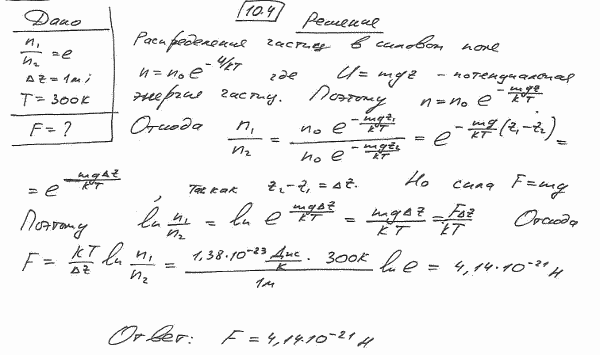 10.4
Дано
n₁/n₂ = e
Δz = 1м;
T = 300К
F = ?
Решение
Распределение частиц в силовом поле
n = n₀ e^(-U/kT) где U = mgz - потенциальная
энергия частиц. Поэтому n = n₀ e^(-mgz/kT)
Отсюда n₁/n₂ = (n₀ e^(-mgz₁/kT))/(n₀ e^(-mgz₂/kT)) = e^(-mg/kT (z₁-z₂)) =
= e^(mgΔz/kT), так как z₂-z₁ = Δz. Но сила F = mg
Поэтому ln n₁/n₂ = ln e^(mgΔz/kT) = mgΔz/kT = FΔz/kT Отсюда
F = kT/Δz ln n₁/n₂ = (1,38·10⁻²³ Дж/К · 300К)/1м ln e = 4,14·10⁻²¹ Н
Ответ: F = 4,14·10⁻²¹ Н